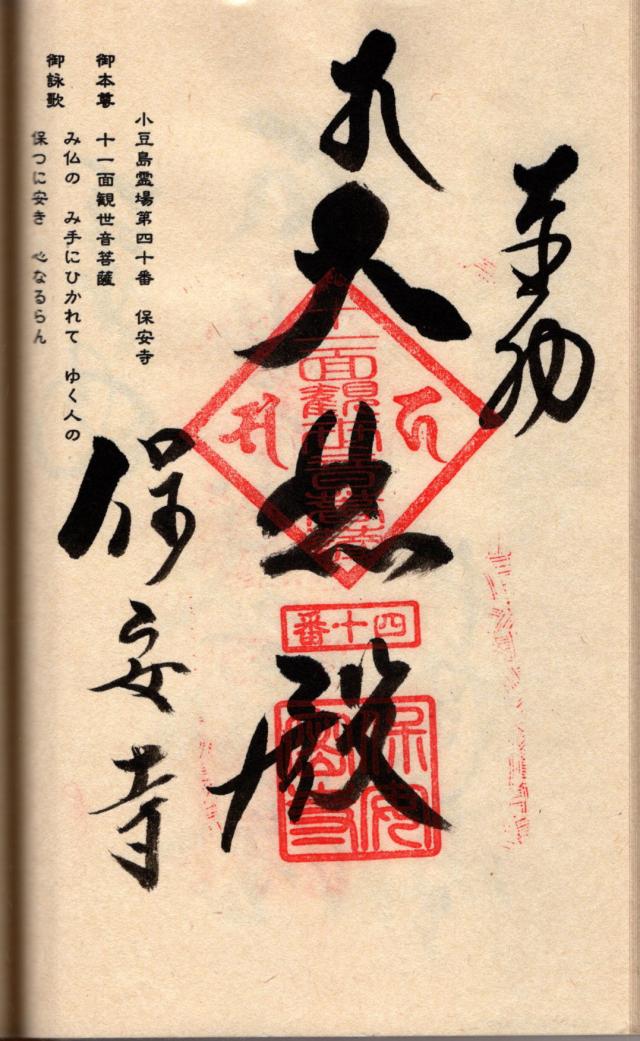 奉納
大悲殿
十一面観世音菩薩
四十番
保安寺
小豆島霊場第四十番　保安寺
御本尊　十一面観世音菩薩
御詠歌
み仏の　み手にひかれて　ゆく人の
保つに安き　心なるらん